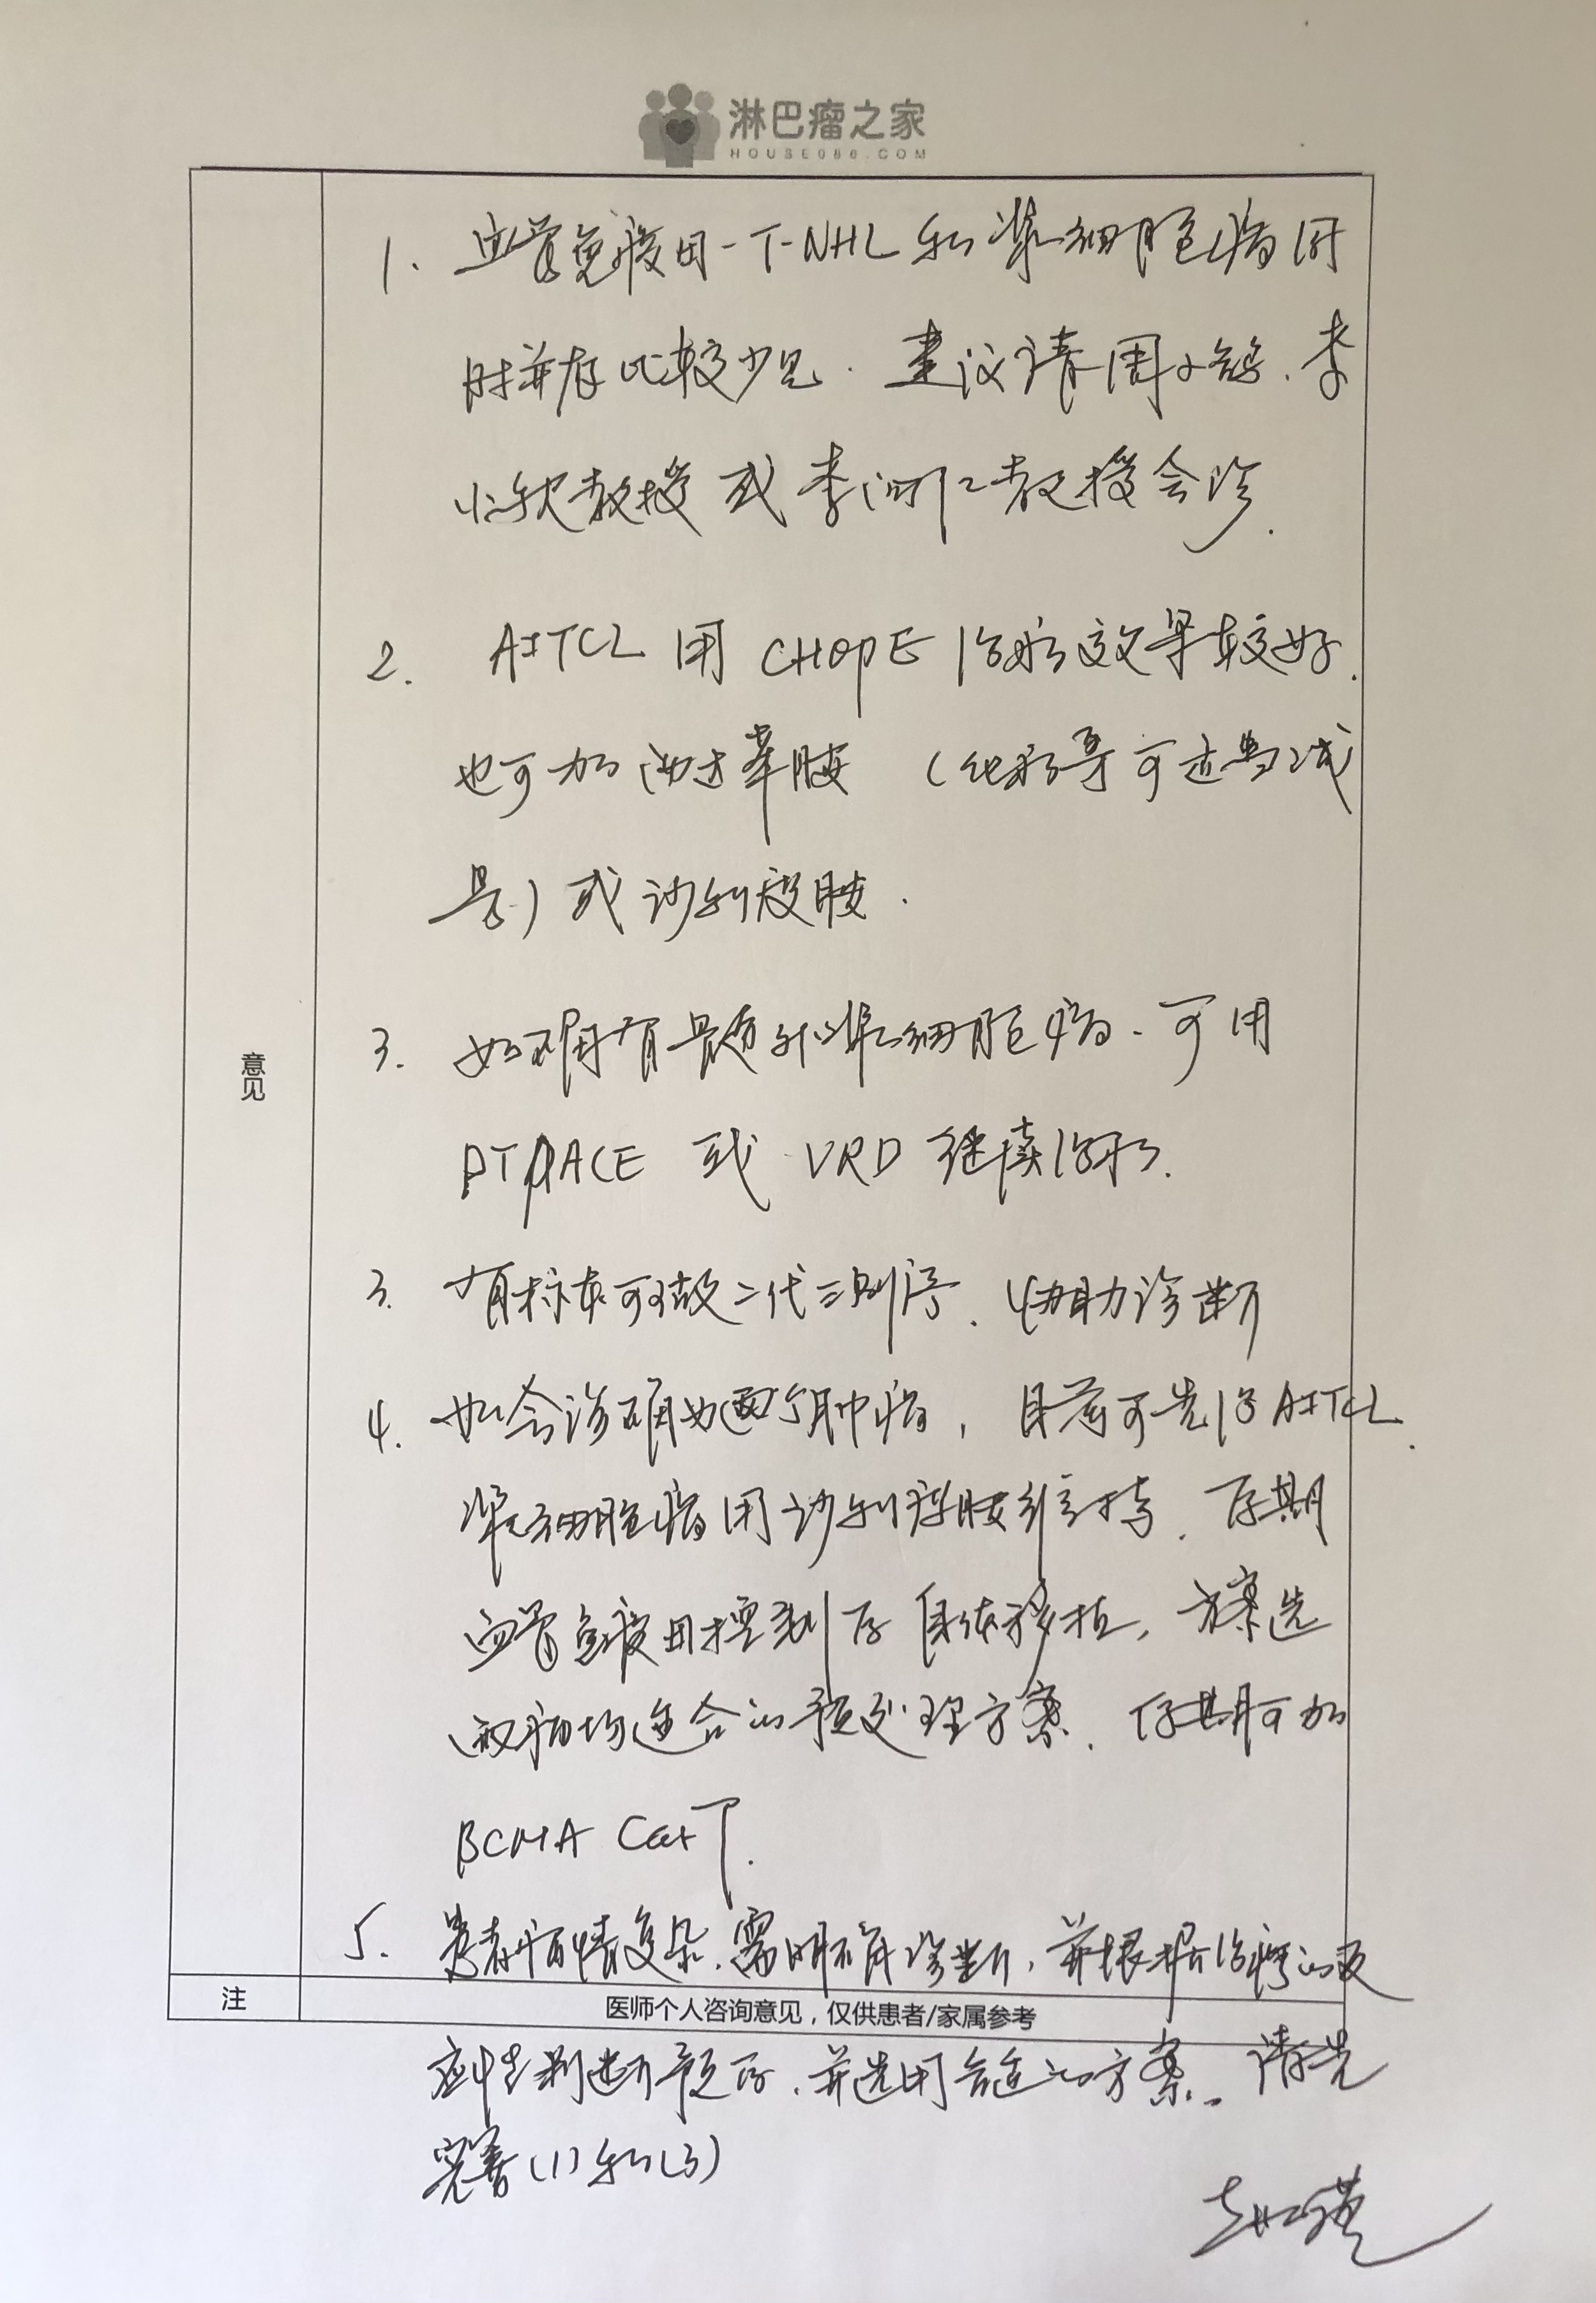 淋巴瘤之家
HOUSE086.COM
1. 血管免疫母-T-NHL和浆细胞瘤同
时并存比较少见. 建议请周小鸽、李
小秋教授或李 教授会诊.
2. AITCL 用 CHOPE 治疗效果较好.
也可加西达苯胺 (化疗量可适当减
量) 或沙利度胺.
3. 如确有是髓外浆细胞瘤、可用
DTPACE 或 VRD 继续治疗.
3. 有标本可做二代测序、协助诊断
4. 如会诊确为两个肿瘤, 目前可先治AITCL.
浆细胞瘤用沙利度胺维持. 后期
血管免疫母控制后自体移植, 方案选
两病均适合的预处理方案. 后期可加
BCMA CarT.
5. 患者病情复杂、需明确诊断, 并根据治疗的反
意见
注
医师个人咨询意见，仅供患者/家属参考
应性判断预后、并选用合适的方案. 请先
完善(1)和(3)